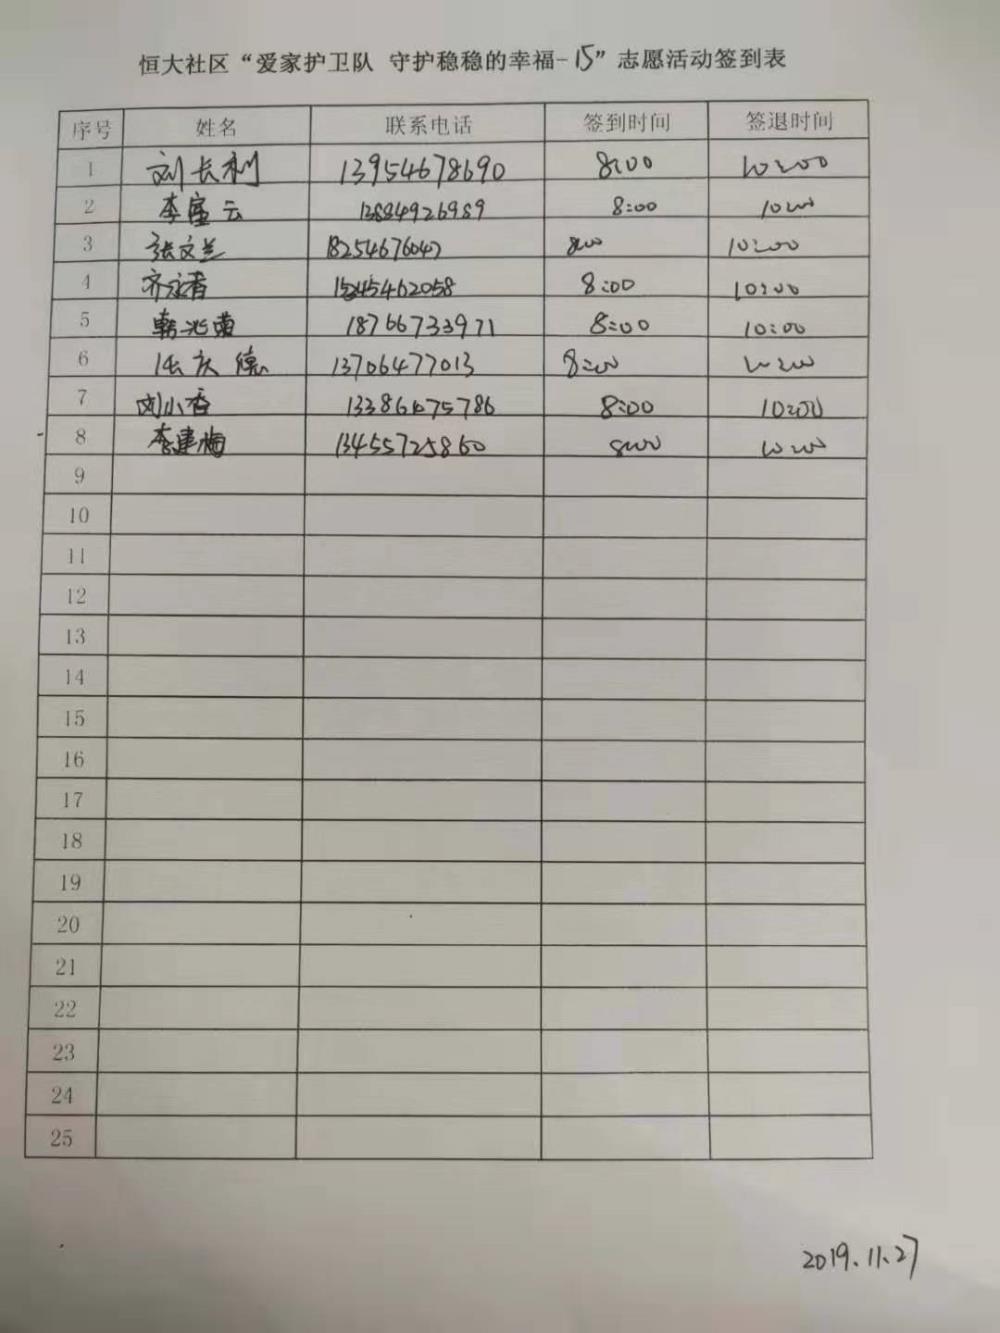 恒大社区“爱家护卫队 守护稳稳的幸福-15”志愿活动签到表
序号 姓名 联系电话 签到时间 签退时间
1 刘长利 13954678690 8:00 10:00
2 李宝云 13884926989 8:00 10:00
3 张文兰 18254676047 8:00 10:00
4 齐永香 15245462058 8:00 10:00
5 韩兆菊 18766733971 8:00 10:00
6 任庆德 13706477013 8:00 10:00
7 刘小香 13386475786 8:00 10:00
8 李建梅 13455725860 8:00 10:00
9
10
11
12
13
14
15
16
17
18
19
20
21
22
23
24
25
2019.11.27